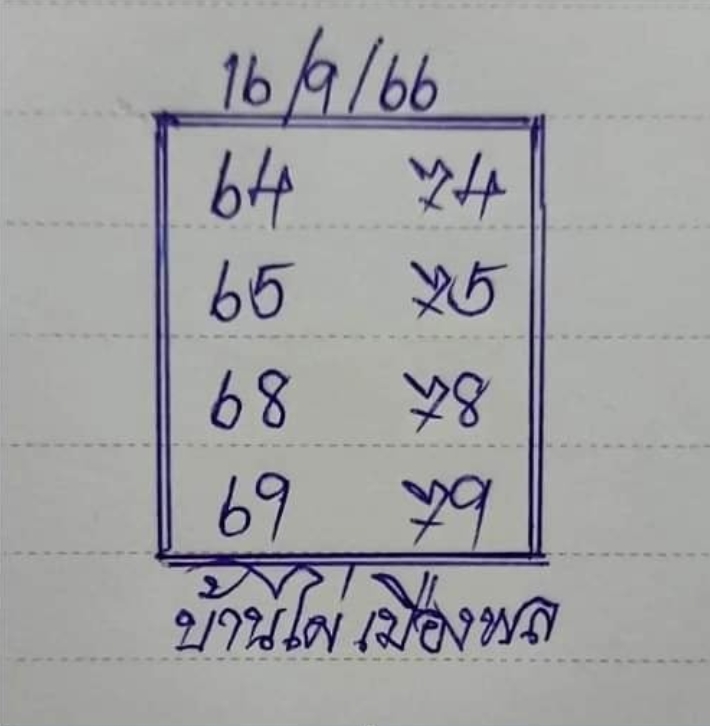 16/9/66
64 74
65 75
68 78
69 79
บ้านไผ่ เมืองพล